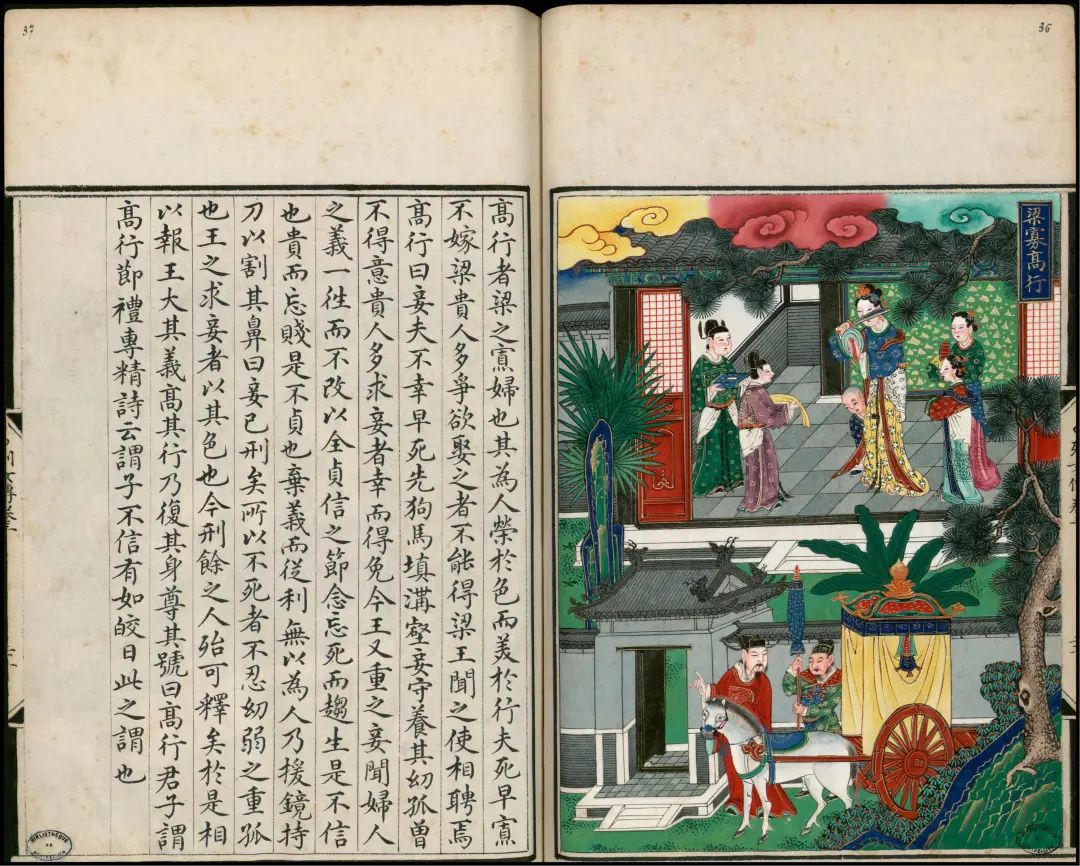 36
梁寡髙行
37
髙行者梁之寡婦也其為人榮於色而美於行夫死早寡
不嫁梁貴人多爭欲娶之者不能得梁王聞之使相聘焉
髙行曰妾夫不幸早死先狗馬填溝壑妾守養其幼孤曾
不得意貴人多求妾者幸而得免今王又重之妾聞婦人
之義一徃而不改以全貞信之節念忘死而趨生是不信
也貴而忘賤是不貞也棄義而従利無以為人乃援鏡持
刀以割其鼻曰妾已刑矣所以不死者不忍幼弱之重孤
也王之求妾者以其色也今刑餘之人殆可釋矣於是相
以報王大其義髙其行乃復其身尊其號曰髙行君子謂
髙行節禮專精詩云謂子不信有如皎日此之謂也
BIBLIOTHEQUE